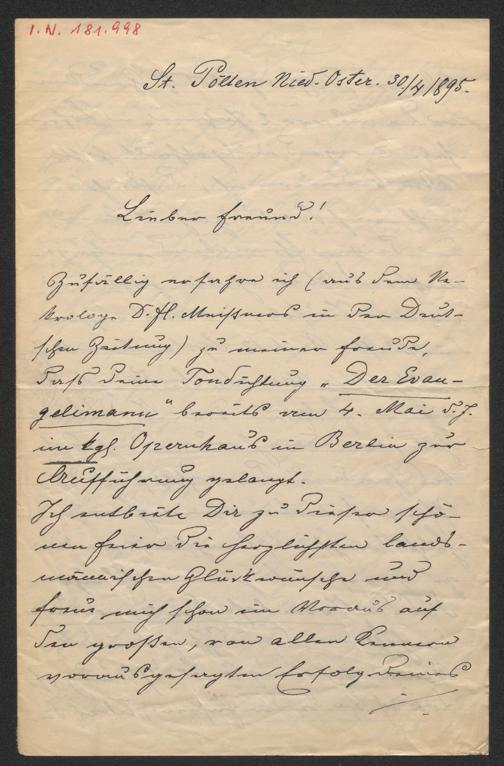 I.N. 181.998
St. Pölten Nied. Öster. 30/4/1895.
Lieber Freund!
Zufällig erfahre ich (aus dem Ne-
krologe D. Fl. Meißners in der Deut-
schen Zeitung) zu meiner Freude,
daß Deine Tondichtung „Der Evan-
gelimann“ bereits am 4. Mai d. J.
im kgl. Opernhaus in Berlin zur
Aufführung gelangt.
Ich entbiete Dir zu dieser schö-
nen Feier die herzlichsten lands-
männischen Glückwünsche und
freue mich schon im Voraus auf
den großen, von allen Kennern
vorausgesagten Erfolg Deines